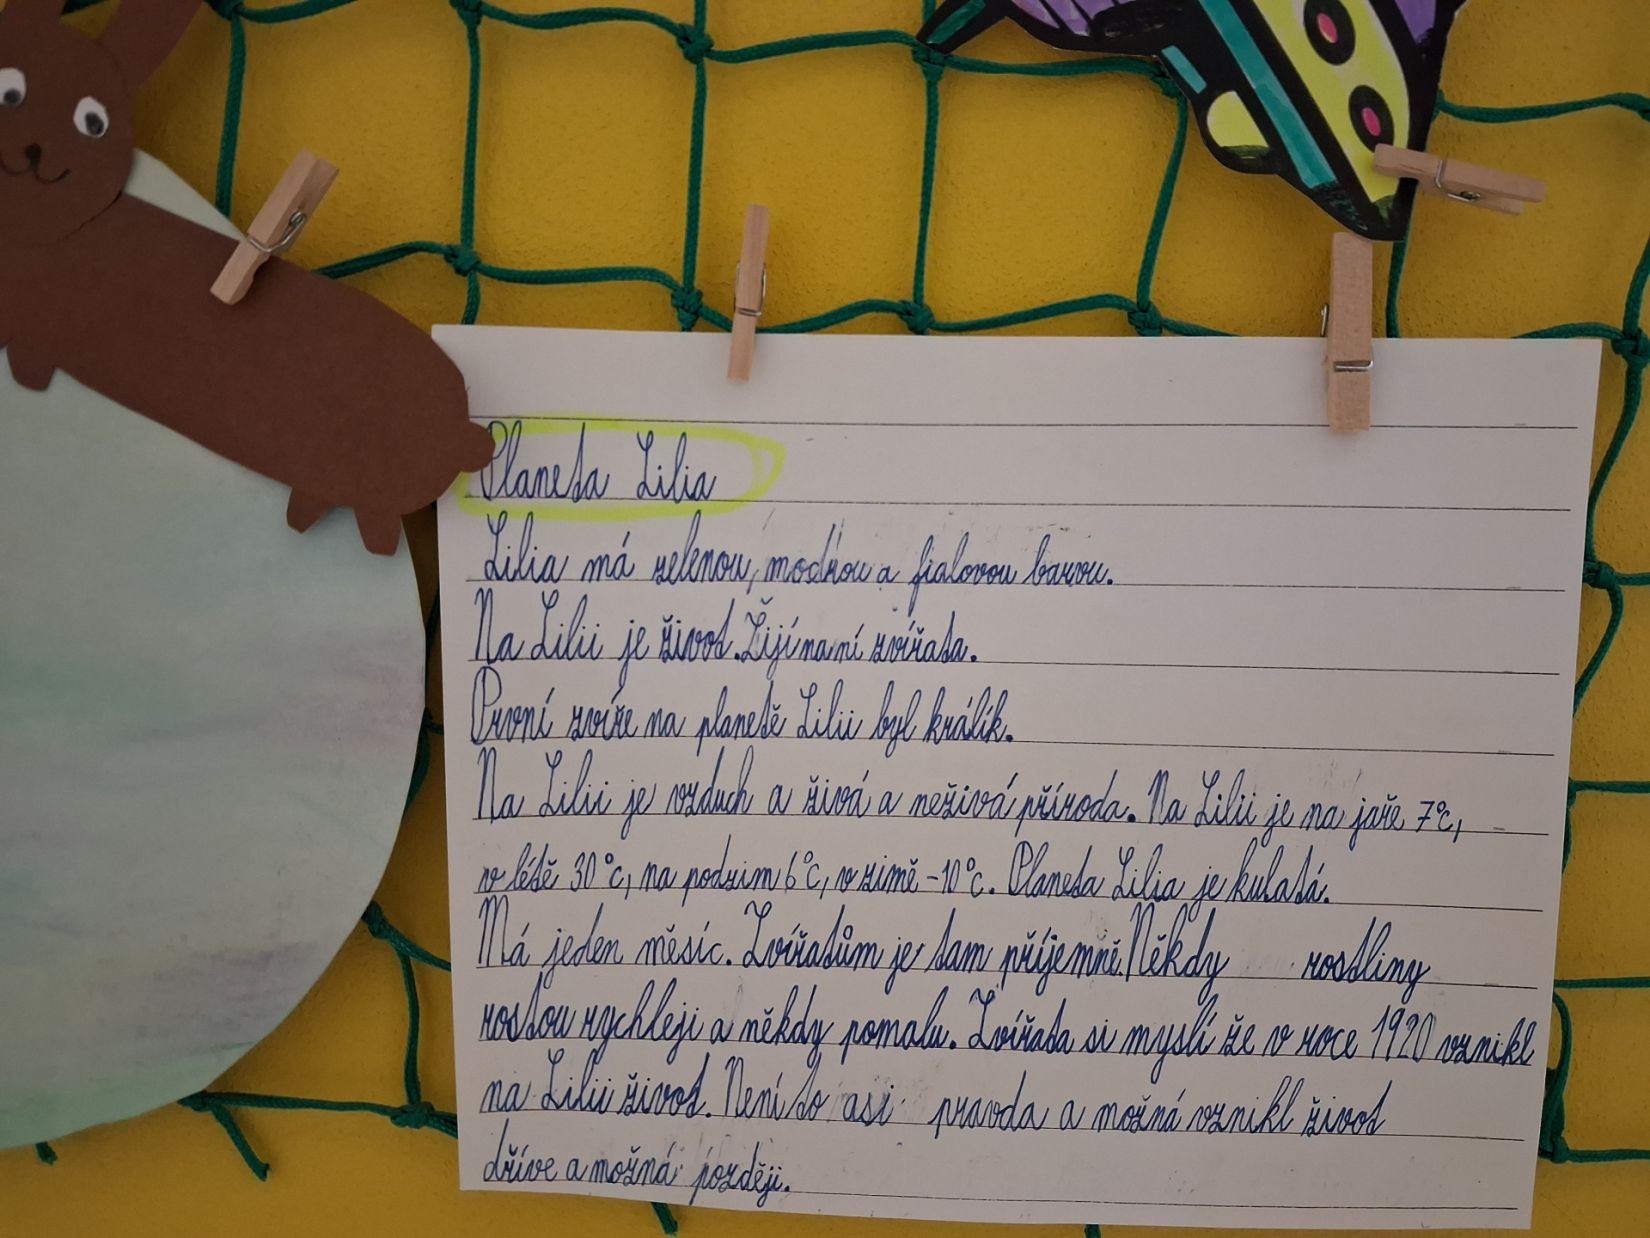 Planeta Lilia
Lilia má zelenou, modrou a fialovou barvu.
Na Lilii je život. Žijí na ní zvířata.
První zvíře na planetě Lilii byl králík.
Na Lilii je vzduch a živá a neživá příroda. Na Lilii je na jaře 7°C,
v létě 30°C, na podzim 6°C, v zimě -10°C. Planeta Lilia je kulatá.
Má jeden měsíc. Zvířatům je tam příjemně. Někdy rostliny
rostou rychleji a někdy pomalu. Zvířata si myslí že v roce 1920 vznikl
na Lilii život. Není to asi pravda a možná vznikl život
dříve a možná později.